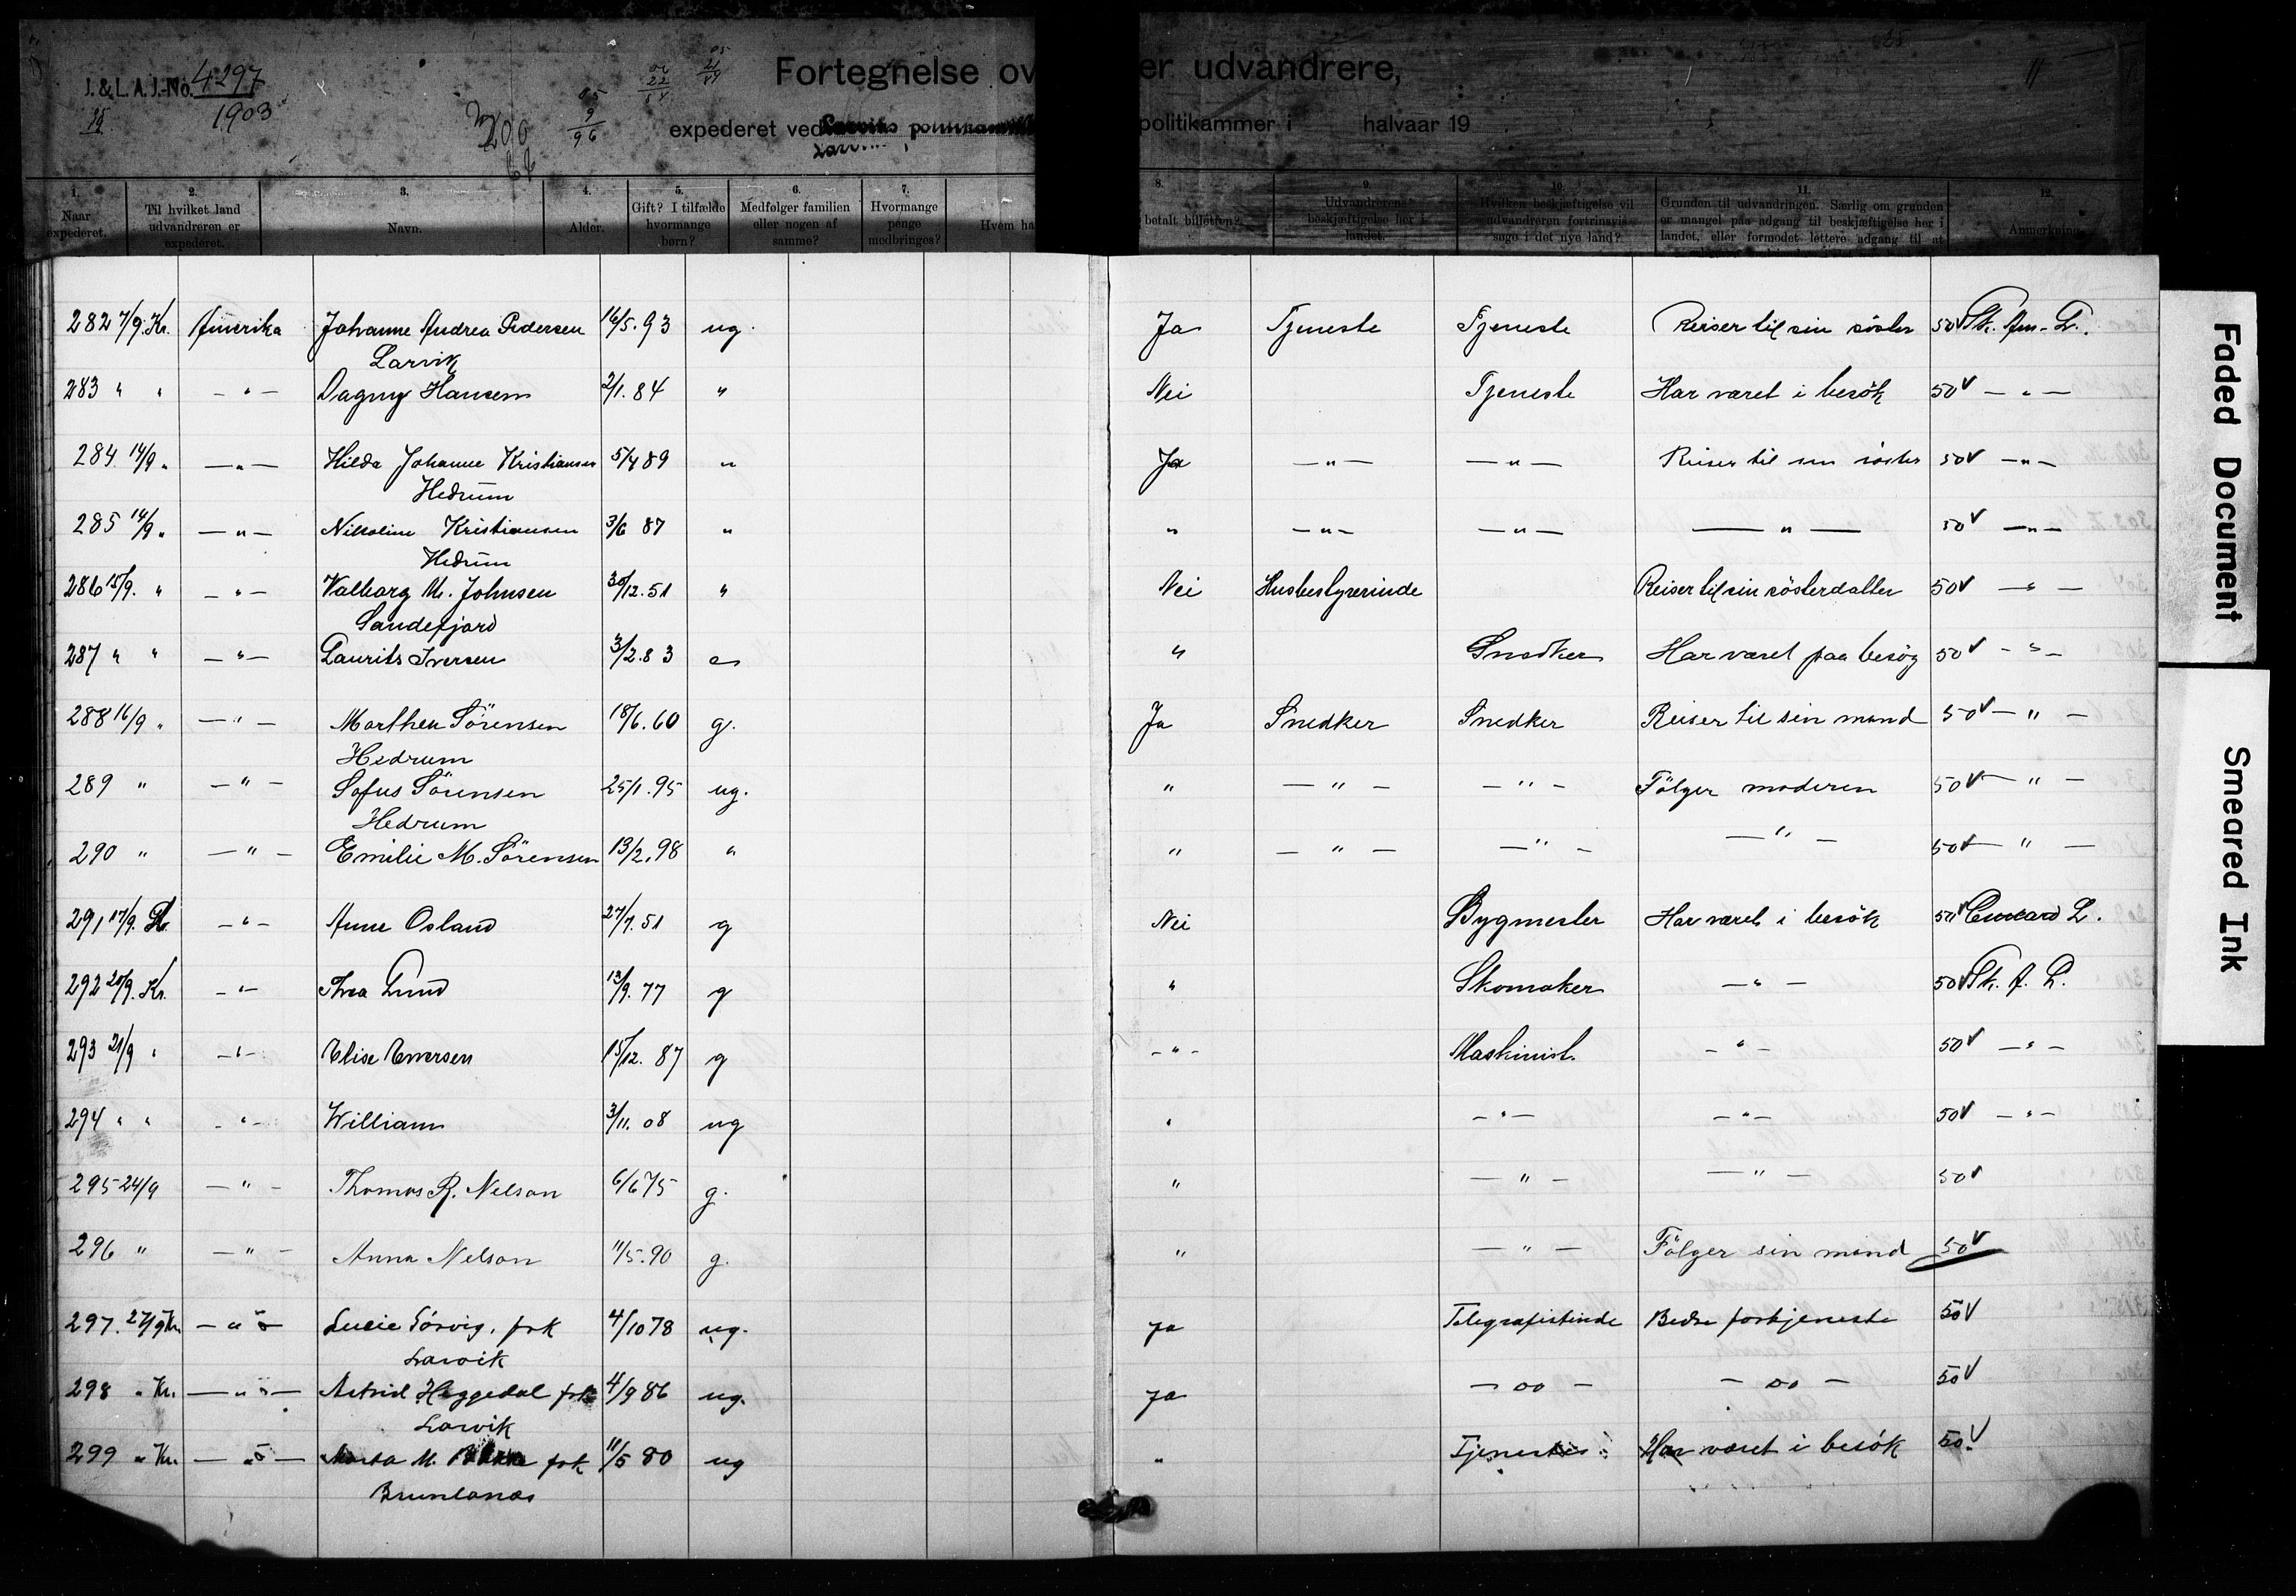 J. & L. A. J.-No. 4297
1903
Fortegnelse over udvandrere,
expederet ved Larviks politikammer i halvaar 19
Larvik
1. Naar expederet.
2. Til hvilket land udvandreren er expederet.
3. Navn.
4. Alder.
5. Gift? I tilfælde hvormange børn?
6. Medfølger familien eller nogen af samme?
7. Hvormange penge medbringes?
8. Hvem ha betalt billetten?
9. Udvandrerens beskjæftigelse her i landet.
10. Hvilken beskjæftigelse vil udvandreren fortrinsvis søge i det nye land?
11. Grunden til udvandringen. Særlig om grunden er mangel paa adgang til beskjæftigelse her i landet, eller formodet lettere adgang til at
12. Anmerkning.
282 7/9. Kr. Amerika Johanne Andrea Pedersen 16/5.93 ug. Ja Tjeneste Tjeneste Reiser til sin söster 50 V Sk. Am. L.
Larvik
283 " " - " - Dagny Hansen 2/1.84 " Nei Tjeneste Har været i besök 50 V - " -
284 14/9 " - " - Hilda Johanne Kristiansen 5/4 89 " Ja - " - - " - Reiser til sin söster 50 V - " -
Hedrum
285 14/9 " - " - Nikoline Kristiansen 3/6 87 " " - " - - " - - " - 50 V - " -
Hedrum
286 15/9. " - " - Valborg M. Johnsen 30/12.51 " Nei Husbestyrerinde Reiser til sin sösterdatter 50 V - " -
Sandefjord
287 " " - " - Laurits Iversen 3/2.83 " " Snedker Har været paa besög 50 V - " -
288 16/9 " - " - Marthea Sörensen 18/6.60 g. Ja Snedker Snedker Reiser til sin mand 50 V - " -
Hedrum
289 " - " - Sofus Sörensen 25/1.95 ug. " - " - - " - Fölger moderen 50 V - " -
Hedrum
290 " - " - Emilie M. Sörensen 13/2.98 " " - " - - " - - " - 50 V - " -
291 17/9. - " - Anne Osland 27/7.51 g Nei Bygmester Har været i besök 50 V Cunard L.
292 20/9. Kr. - " - Thea Lund 13/9.77 g " Skomaker - " - 50 V Sk. A. L.
293 21/9 " - " - Elise Eversen 15/12.87 g - " - Maskinist - " - 50 V - " -
294 " " - " - William 3/11.08 ug " - " - - " - 50 V - " -
295 24/9 - " - Thomas R. Nelson 6/6 75 g. " - " - - " - 50 V
296 " - " - Anna Nelson 11/5.90 g. " - " - Fölger sin mand 50 V
297. 27/9 Kr. - " - Lucie Sörvig, frk 4/10 78 ug. Ja Telegrafistinde Bedre fortjeneste 50 V
Larvik
298 " Kr. - " - Astrid Heggedal frk 4/9 86 ug. Ja - " - - " - 50 V
Larvik
299 " Kr. - " - Marta M. frk 11/5 80 ug " Tjeneste Har været i besök 50 V
Brunlanæs
Faded Document
Smeared Ink